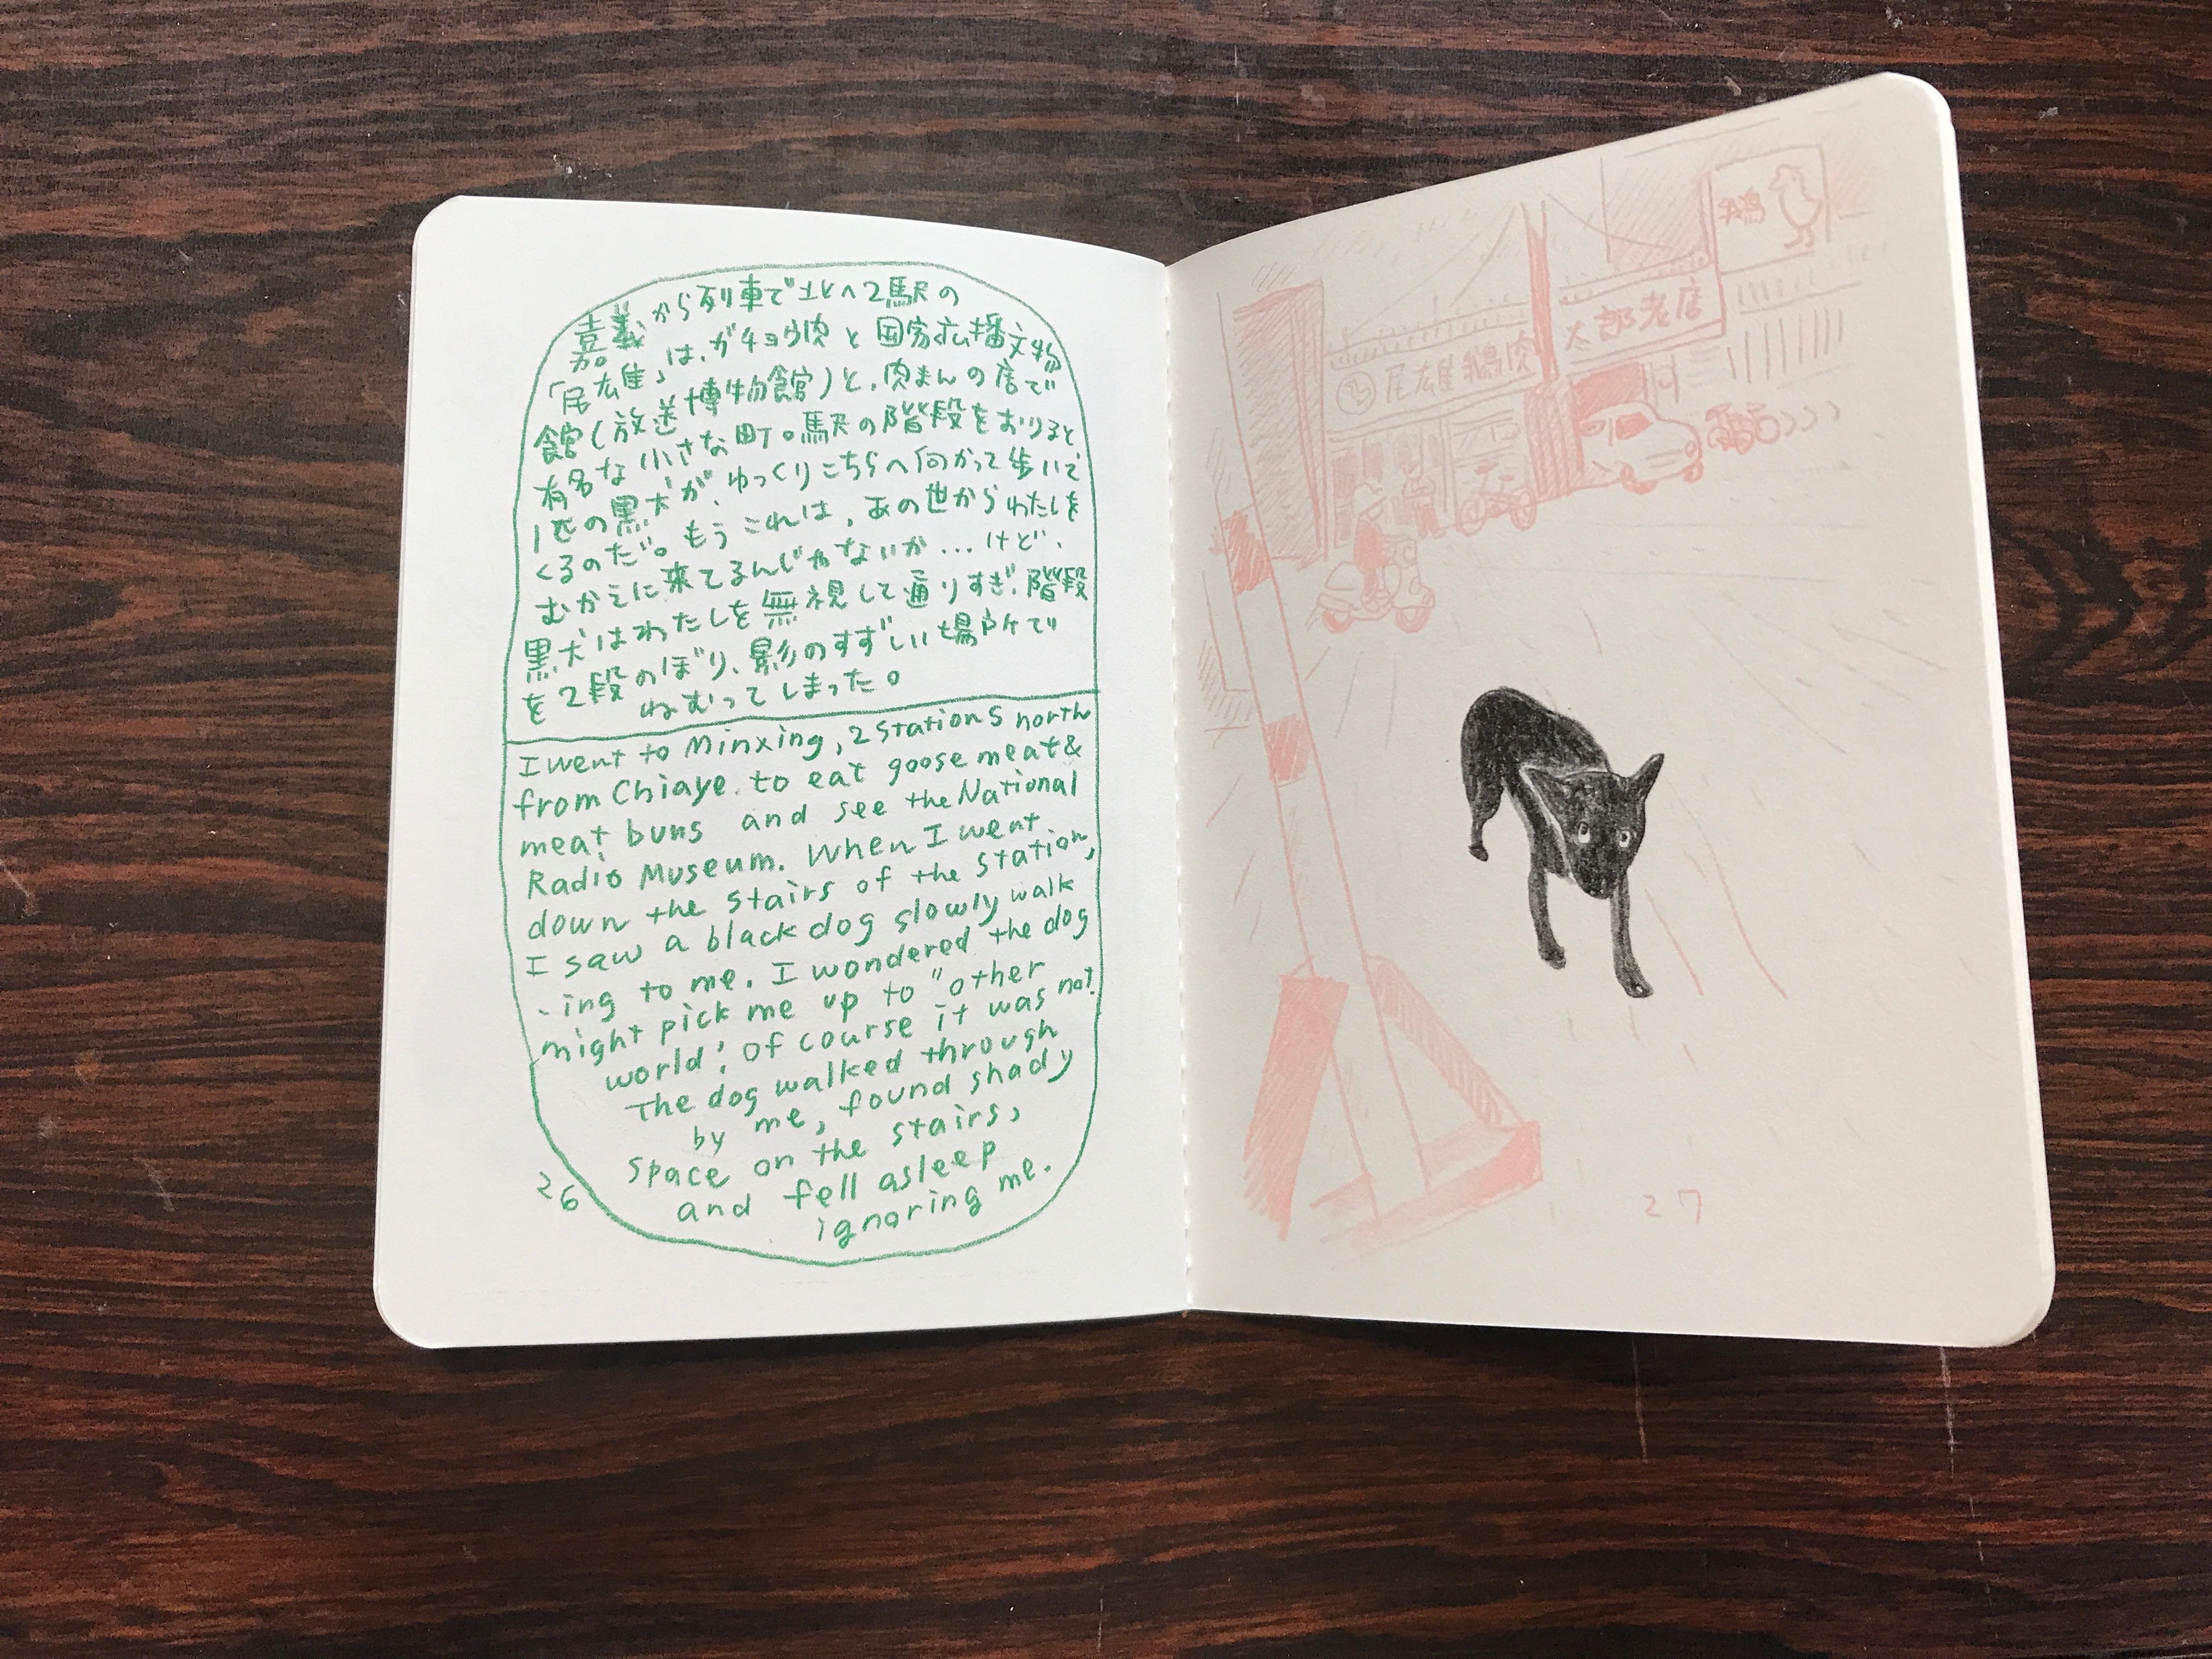 嘉義から列車で北へ2駅の
「民雄」は、ガチョウ肉と国家広播文物
館(放送博物館)と、肉まんの店で
有名な小さな町。駅の階段をおりると、
1匹の黒犬が、ゆっくりこちらへ向かって歩いて
くるのだ。もうこれは、あの世からわたしを
むかえに来てるんじゃないか…けど、
黒犬はわたしを無視して通りすぎ、階段
を2段のぼり、影のすずしい場所で
ねむってしまった。
I went to Minxing, 2 stations north
from Chiaye to eat goose meat &
meat buns and see the National
Radio Museum. When I went
down the stairs of the station,
I saw a black dog slowly walk
-ing to me. I wondered the dog
might pick me up to "other
world! Of course it was not.
The dog walked through
by me, found shady
space on the stairs,
and fell asleep
ignoring me.
26
鵝
民雄鵝肉
太郎老店
27